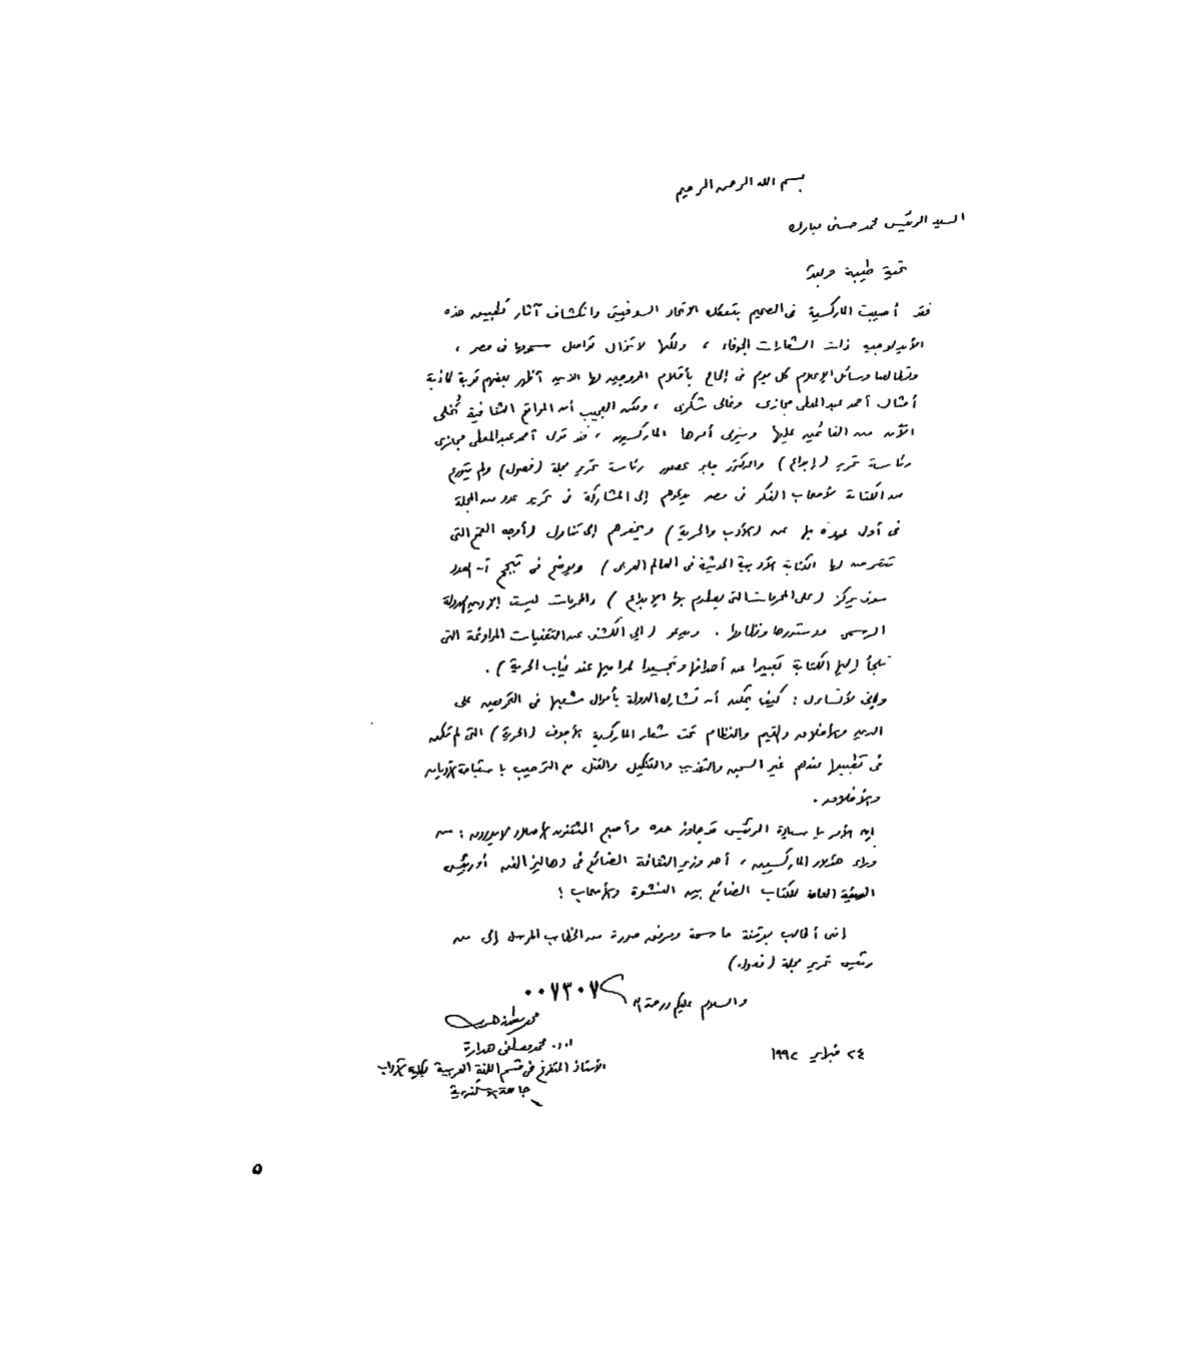 بسم الله الرحمن الرحيم
السيد الرئيس محمد حسنى مبارك
تحية طيبة وبعد
فقد أصيبت الماركسية فى الصميم بتفكك الاتحاد السوفييتى وانكشاف آثار تطبيق هذه
الأيديولوجية ذات الشعارات الجوفاء ، ولكنها لا تزال تواصل سمومها فى مصر ،
وتطالعنا وسائل الإعلام كل يوم فى إلحاح بأقلام المروجين لها الذين أظهر بعضهم توبة كاذبة
أمثال أحمد عبد المعطى حجازى وغالى شكرى ، ولكن العجيب أن المواقع الثقافية تُخلى
الآن من القائمين عليها ويتولى أمرها الماركسيون ، فقد تولى أحمد عبد المعطى حجازى
رئاسة تحرير (إبداع) والدكتور جابر عصفور رئاسة تحرير مجلة (فصول) ولم يتورع
من الكتابة لأصحاب الفكر فى مصر يدعوهم إلى المشاركة فى تحرير عدد من المجلة
فى أول عهده بها عن (الأدب والحرية) ويحفزهم إلى تناول (أوجه القمع التى
تتعرض لها الكتابة الأدبية الحديثة فى العالم العربى) ويوضح فى تبجح أن العدد
سوف يركز (على المحرمات التى يصطدم بها الإبداع) والمحرمات ليست إلا دين الدولة
الرسمى ودستورها ونظامها . ويدعو (إلى الكشف عن التقنيات المراوغة التى
تلجأ إليها الكتابة تعبيرا عن أهدافها وتجسيدا لمراميها عند غياب الحرية) .
وإنى لأتساءل : كيف يمكن أن تشارك الدولة بأموال شعبها فى التحريض على
الدين والأخلاق والقيم والنظام تحت شعار الماركسية الأجوف (الحرية) التى لم تكن
فى تطبيقها عندهم غير السجن والتعذيب والتنكيل والقتل مع الترحيب باستباحة الأديان
والأخلاق .
إن الأمر يا سيادة الرئيس قد جاوز حده وأصبح المثقفون الأصلاء لا يدرون : من
وراء هؤلاء الماركسيين ، أهو وزير الثقافة الضائع فى دهاليز الفن أو رئيس
الهيئة العامة للكتاب الضائع بين النشوة والأصحاب ؟
إننى أطالب بوقفة حاسمة ومرفق صورة من الخطاب المرسل إلى من
رئيس تحرير مجلة (فصول)
والسلام عليكم ورحمة الله
٠٠٧٣٠٧
أ.د. محمد مصطفى هدارة
الأستاذ المتفرغ فى قسم اللغة العربية بكلية الآداب
جامعة الاسكندرية
٢٤ فبراير ١٩٩٢
٥